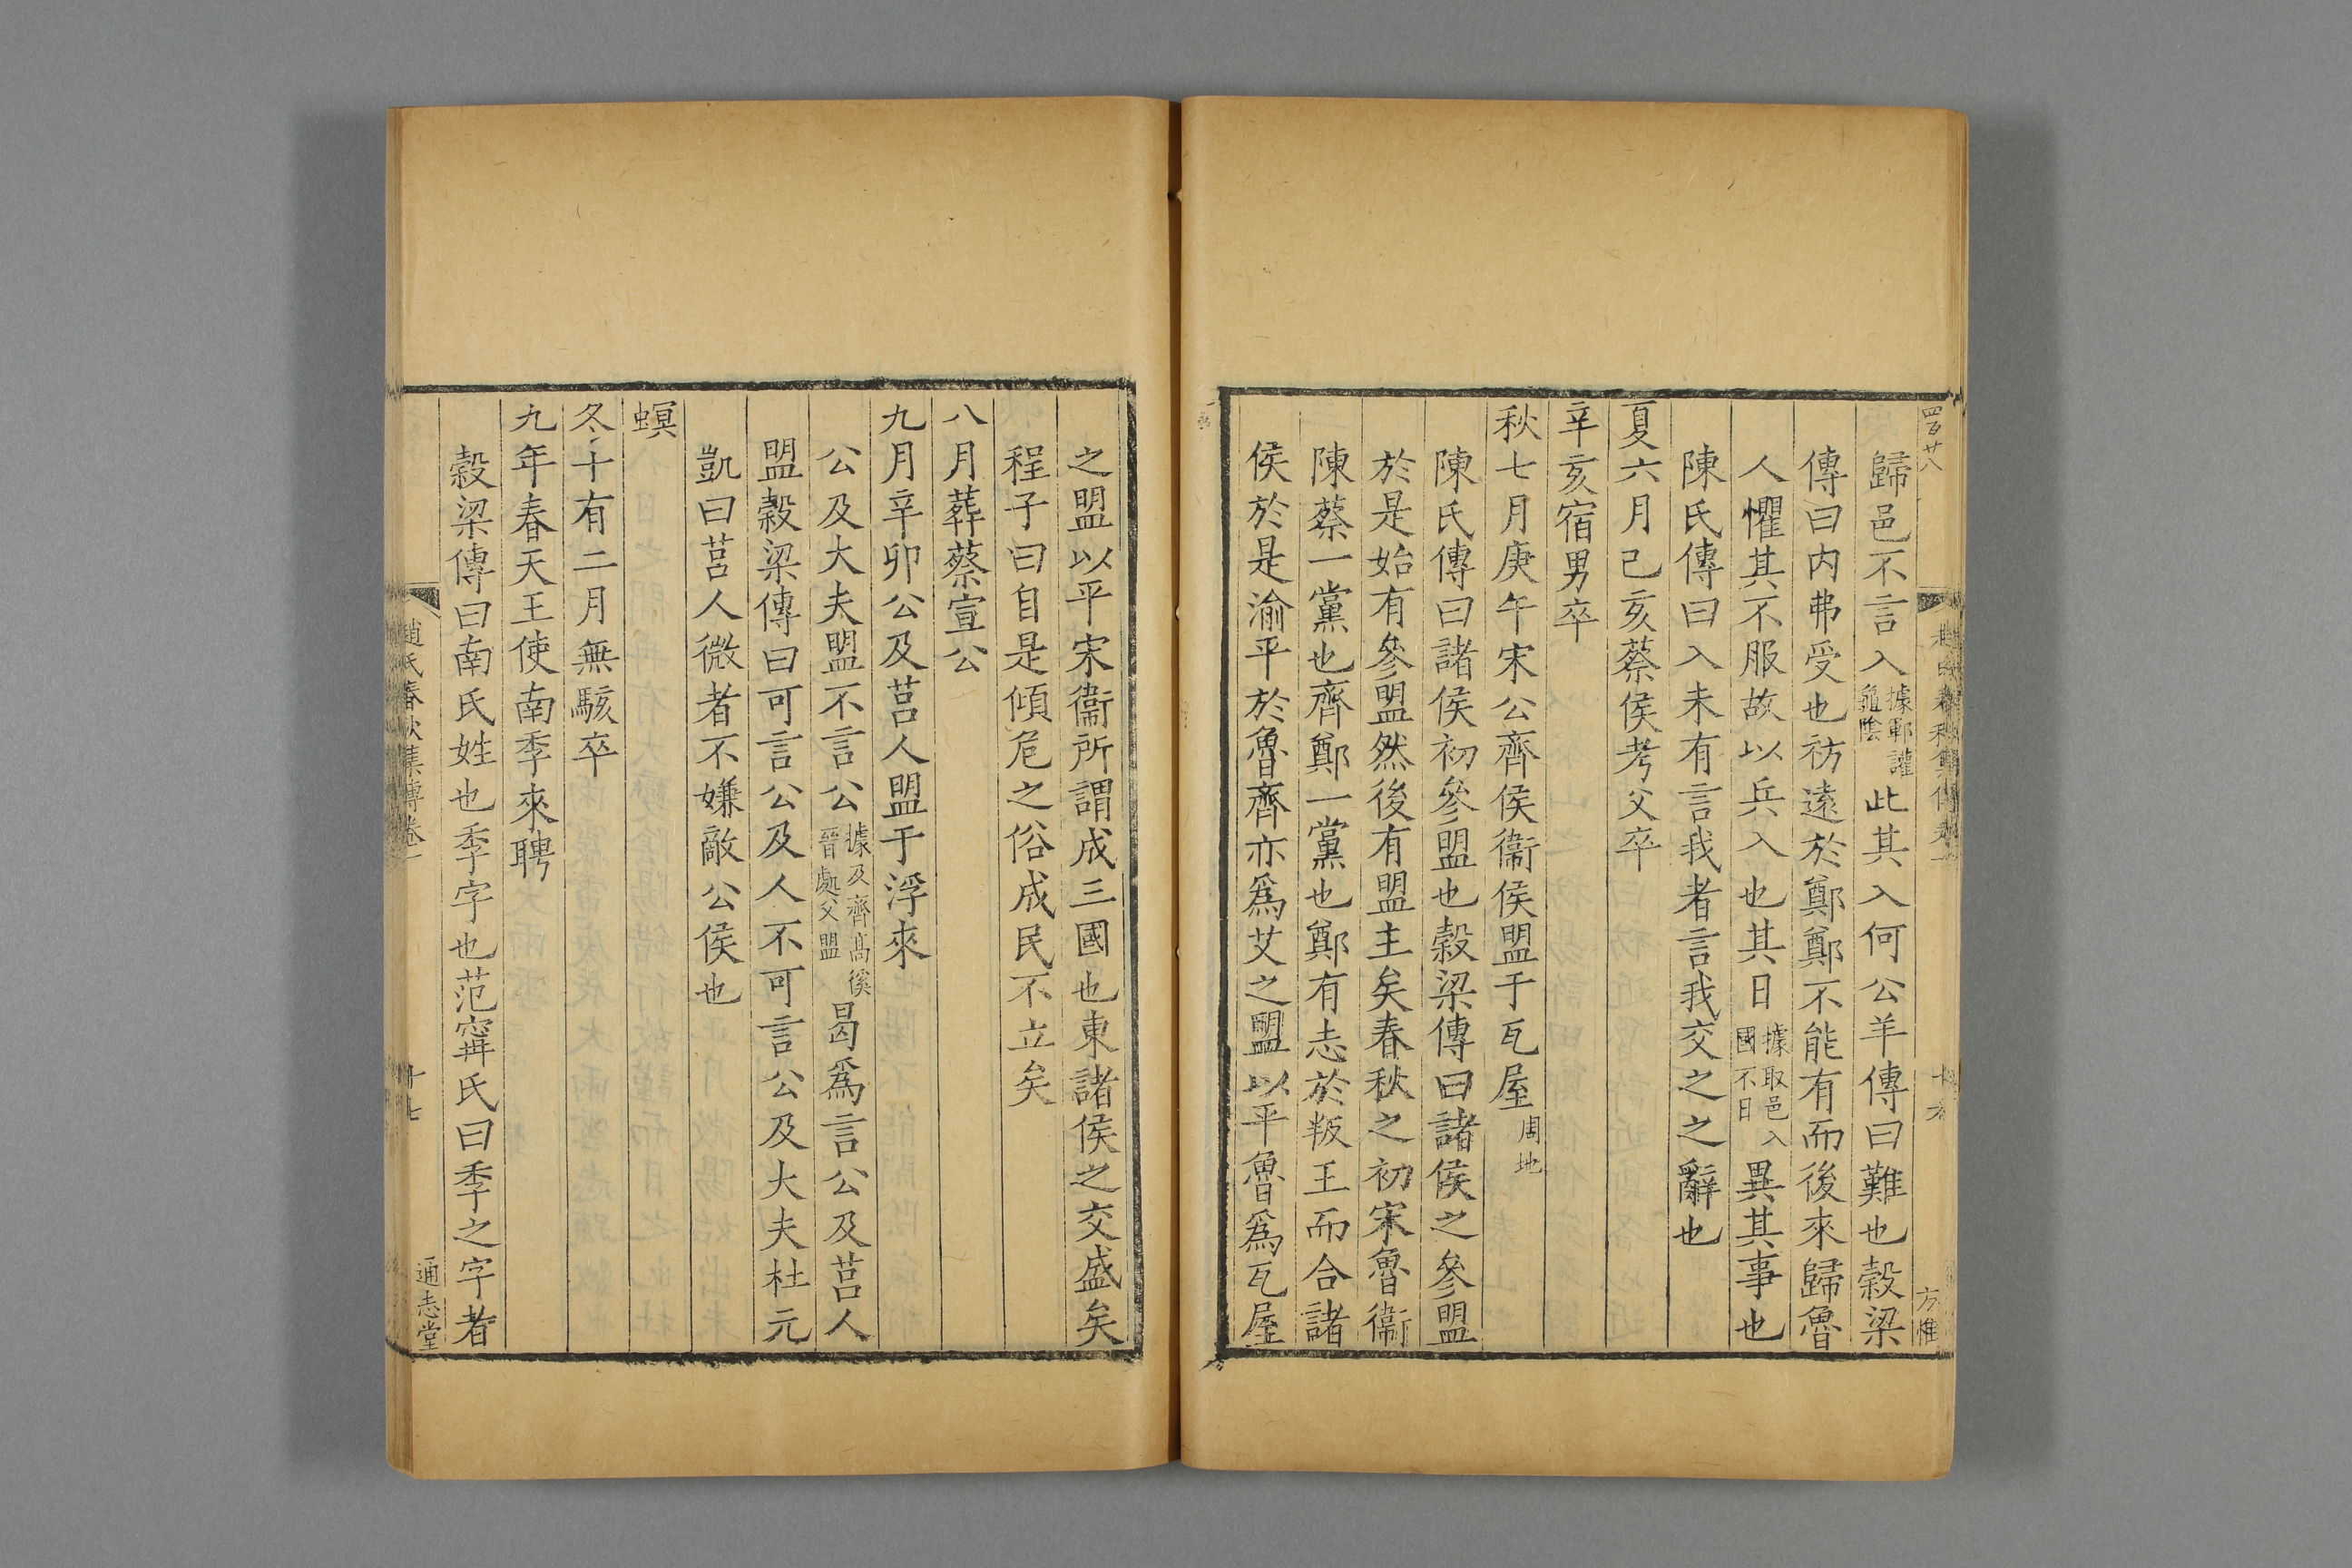 四百廿八
歸邑不言入據鄆讙龜陰此其入何公羊傳曰難也穀梁
傳曰内弗受也祊遠於鄭鄭不能有而後來歸魯
人懼其不服故以兵入也其日據取邑入國不日異其事也
陳氏傳曰入未有言我者言我交之之辭也
夏六月己亥蔡侯考父卒
辛亥宿男卒
秋七月庚午宋公齊侯衞侯盟于瓦屋周地
陳氏傳曰諸侯初參盟也穀梁傳曰諸侯之參盟
於是始有參盟然後有盟主矣春秋之初宋魯衞
陳蔡一黨也齊鄭一黨也鄭有志於叛王而合諸
侯於是渝平於魯齊亦爲艾之盟以平魯爲瓦屋
之盟以平宋衞所謂成三國也東諸侯之交盛矣
程子曰自是傾危之俗成民不立矣
八月葬蔡宣公
九月辛卯公及莒人盟于浮來
公及大夫盟不言公據及齊高傒晉處父盟曷爲言公及莒人
盟穀梁傳曰可言公及人不可言公及大夫杜元
凱曰莒人微者不嫌敵公侯也
螟
冬十有二月無駭卒
九年春天王使南季來聘
穀梁傳曰南氏姓也季字也范甯氏曰季之字者
趙氏春秋集傳卷一
十七
通志堂